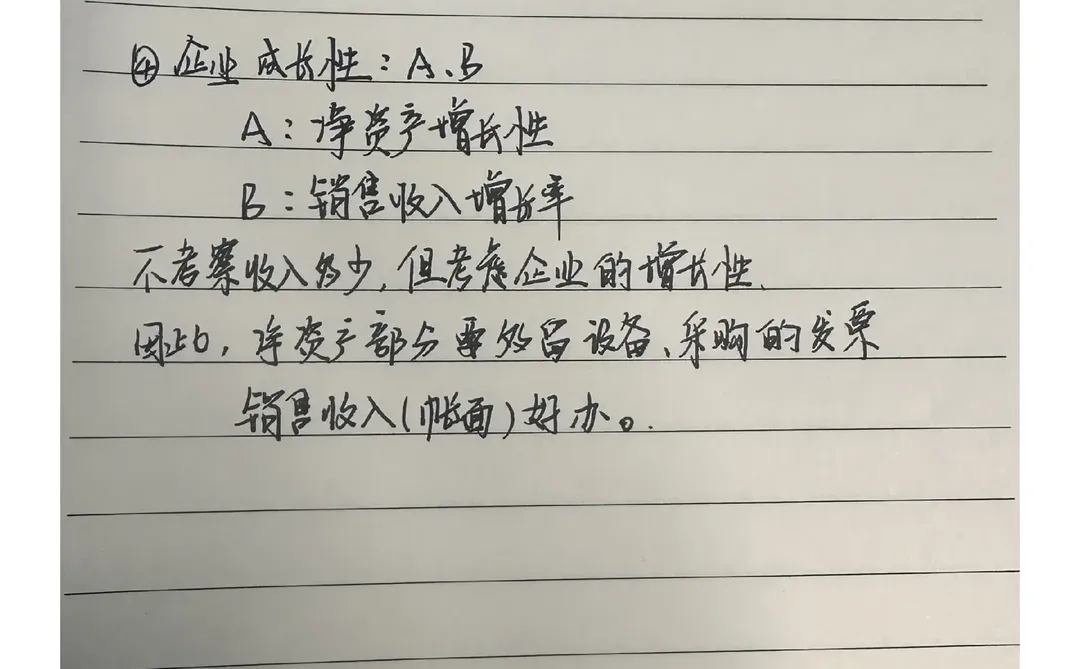 ④ 企业成长性：A、B
A：净资产增长性
B：销售收入增长率
不考察收入多少，但考虑企业的增长性.
因此，净资产部分要多留设备、采购的发票
销售收入(帐面)好办。.